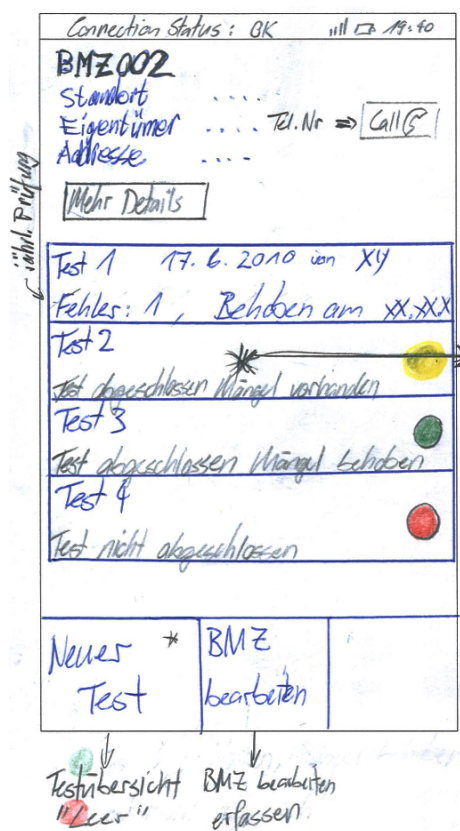 Connection Status: OK 19:40
BMZ002
Standort ....
Eigentümer .... Tel.Nr ⇒ Call
Addresse ....
Mehr Details
jährl. Prüfung
Test 1 17.6.2010 von XY
Fehler: 1, Behoben am XX.XX.X
Test 2
Test abgeschlossen Mängel vorhanden
Test 3
Test abgeschlossen Mängel behoben
Test 4
Test nicht abgeschlossen
Neuer * Test
BMZ bearbeiten
Testübersicht "Leer"
BMZ bearbeiten erfassen